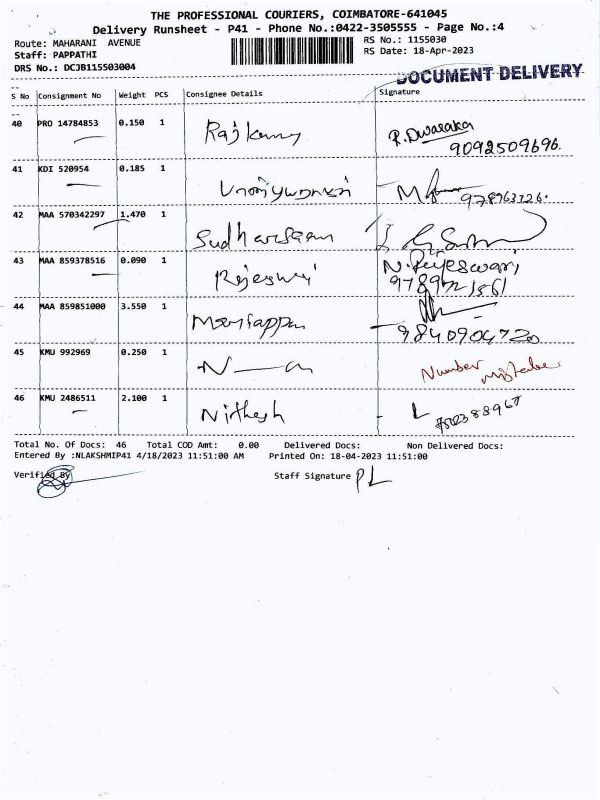 THE PROFESSIONAL COURIERS, COIMBATORE-641045
Delivery Runsheet - P41 - Phone No.:0422-3505555 - Page No.:4
Route: MAHARANI AVENUE
RS No.: 1155030
Staff: PAPPATHI
RS Date: 18-Apr-2023
DRS No.: DCJB115503004
DOCUMENT DELIVERY
S No Consignment No Weight PCS Consignee Details Signature
40 PRO 14784853 0.150 1 Rajkumar R.Dwaraka
9092509696.
41 KDI 520954 0.185 1
42 MAA 570342297 1.470 1
43 MAA 859378516 0.090 1 N.Rajeswari
44 MAA 859851000 3.550 1
9840904720
45 KMU 992969 0.250 1 Number mistake
46 KMU 2486511 2.100 1 Nithesh
Total No. Of Docs: 46 Total COD Amt: 0.00 Delivered Docs: Non Delivered Docs:
Entered By :NLAKSHMIP41 4/18/2023 11:51:00 AM Printed On: 18-04-2023 11:51:00
Verified By Staff Signature PL